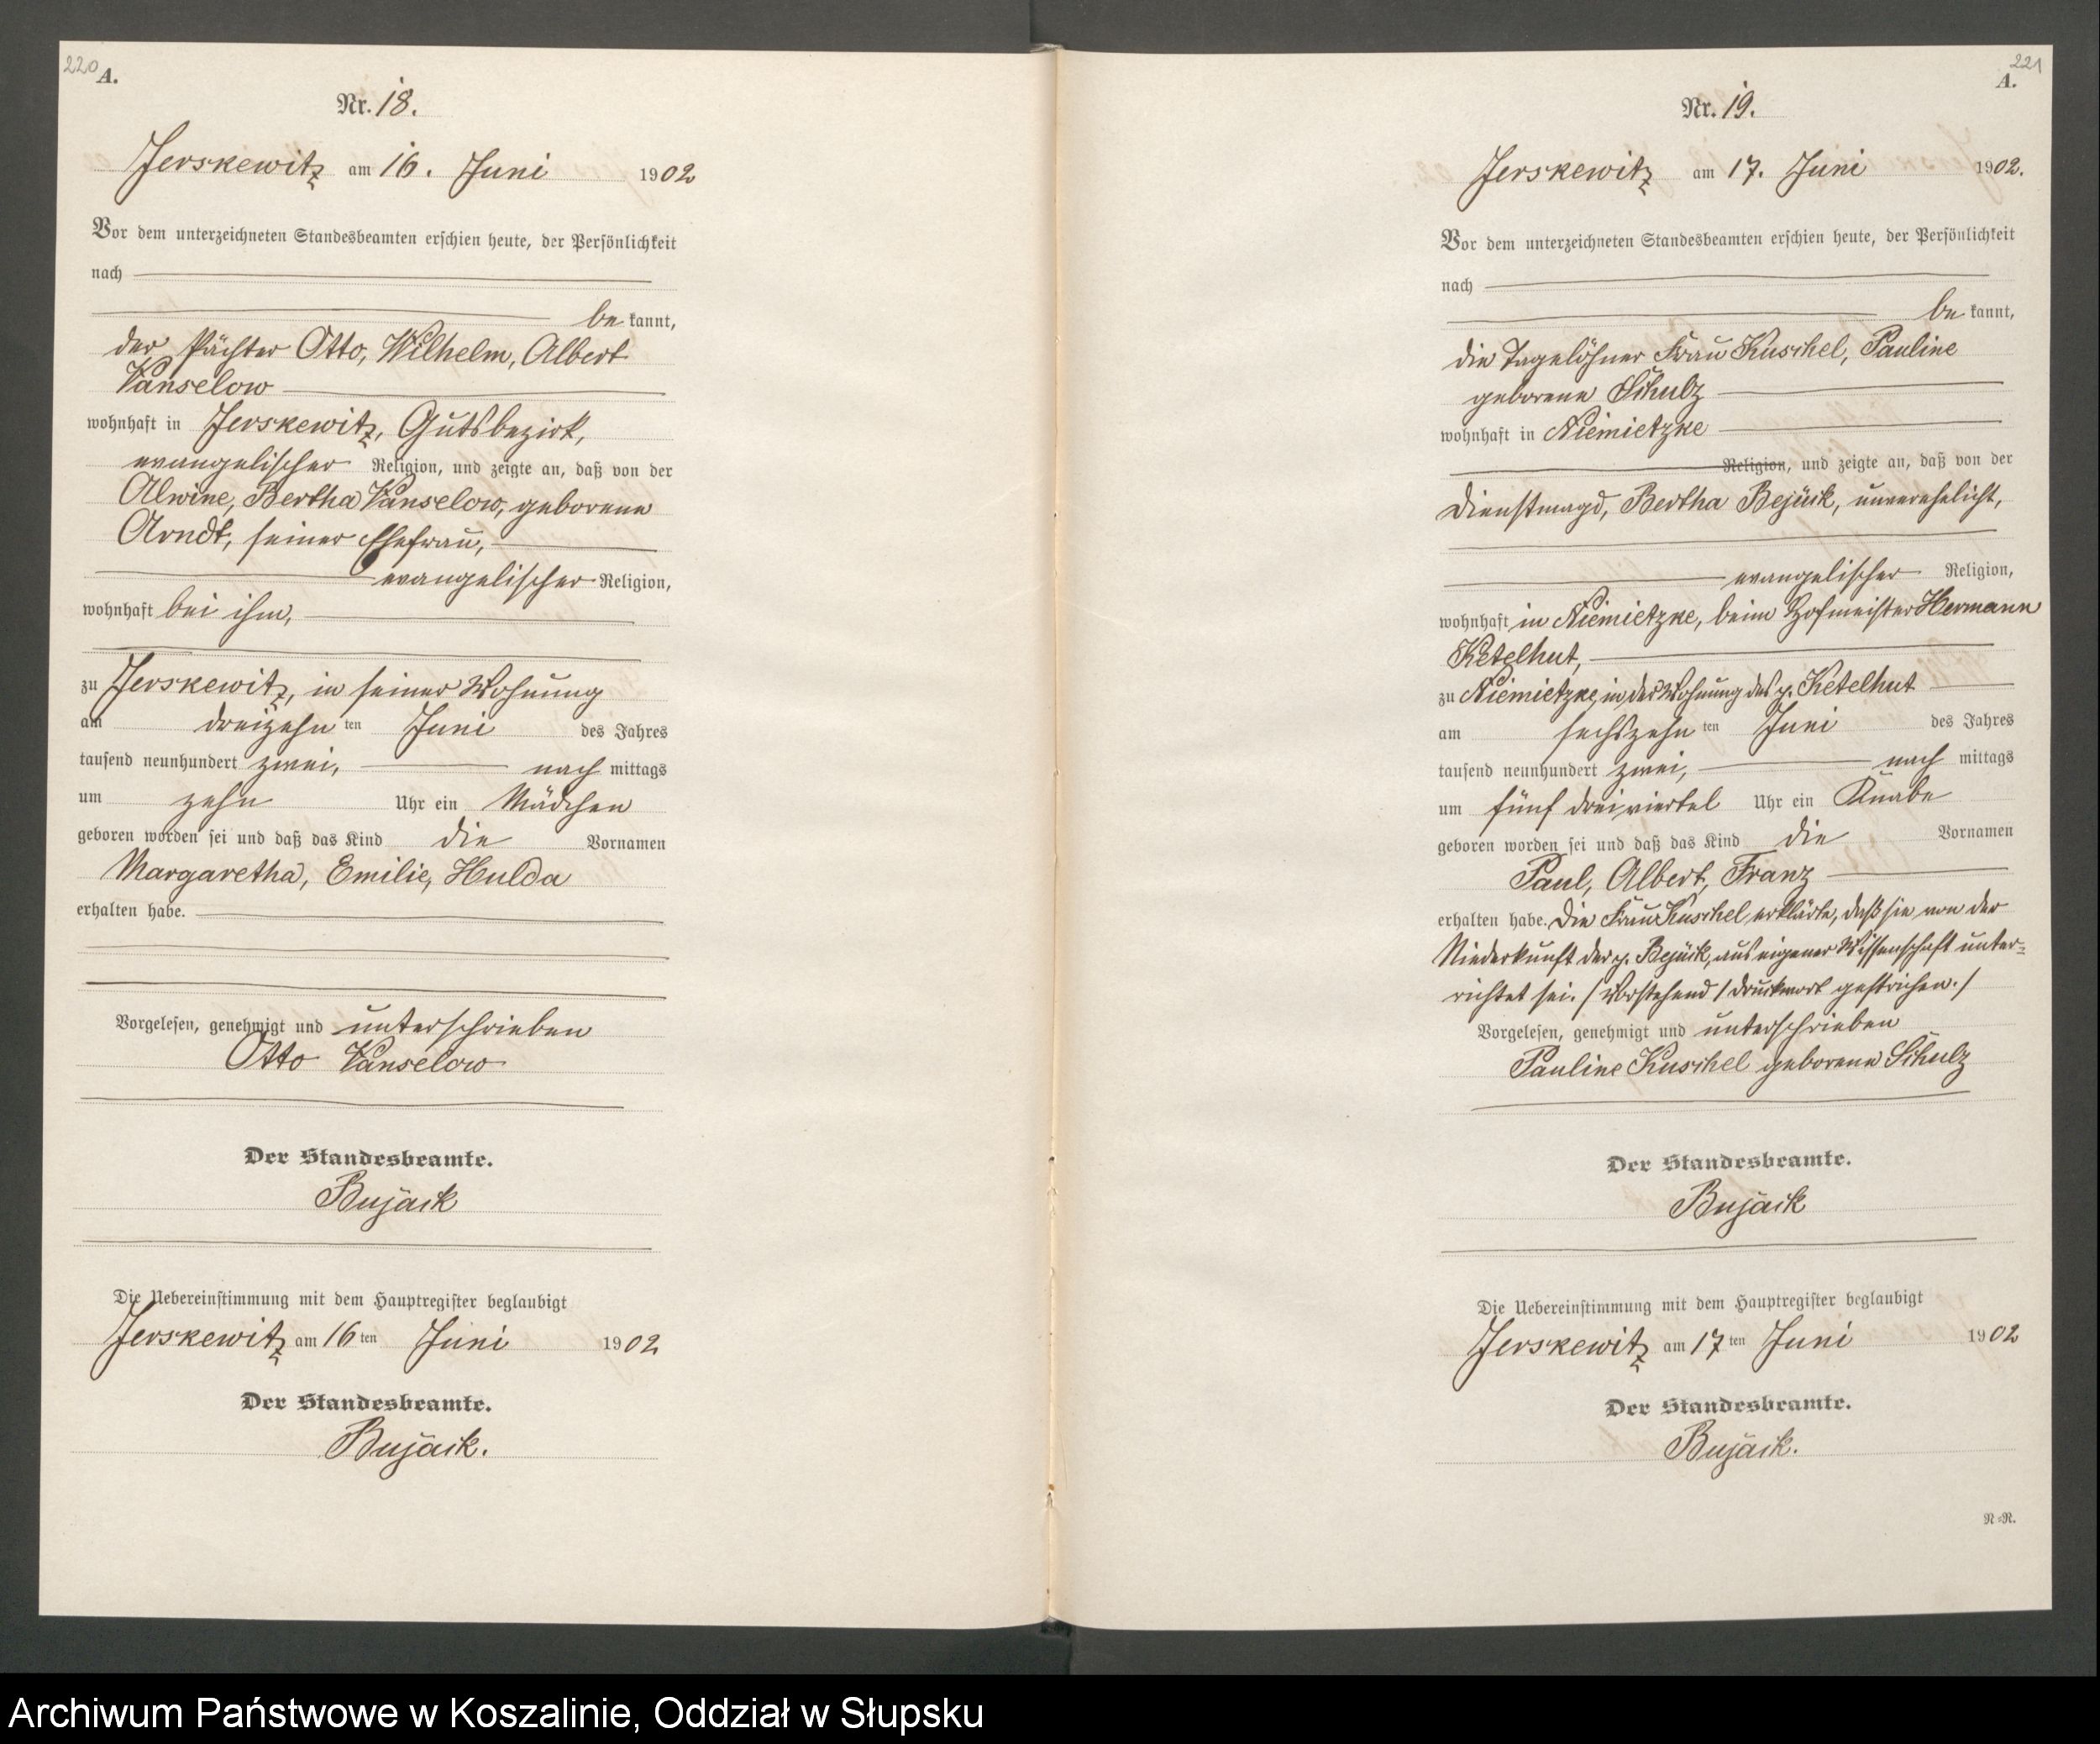 220
A.
Nr. 18.
Jerskewitz am 16. Juni 1902
Vor dem unterzeichneten Standesbeamten erschien heute, der Persönlichkeit
nach
be kannt,
der Pächter Otto, Wilhelm, Albert
Vanselow
wohnhaft in Jerskewitz, Gutsbezirk,
evangelischer Religion, und zeigte an, daß von der
Alwine, Bertha Vanselow, geborene
Arndt, seiner Ehefrau,
evangelischer Religion,
wohnhaft bei ihm,
zu Jerskewitz, in seiner Wohnung
am dreizehn ten Juni des Jahres
tausend neunhundert zwei, nach mittags
um zehn Uhr ein Mädchen
geboren worden sei und daß das Kind die Vornamen
Margaretha, Emilie, Hulda
erhalten habe.
Vorgelesen, genehmigt und unterschrieben
Otto Vanselow
Der Standesbeamte.
Bujack
Die Uebereinstimmung mit dem Hauptregister beglaubigt
Jerskewitz am 16 ten Juni 1902
Der Standesbeamte.
Bujack.
221
A.
Nr. 19.
Jerskewitz am 17. Juni 1902.
Vor dem unterzeichneten Standesbeamten erschien heute, der Persönlichkeit
nach
be kannt,
die Tagelöhner Frau Kuschel, Pauline
geborene Schulz
wohnhaft in Niemietzke
Religion, und zeigte an, daß von der
Dienstmagd, Bertha Bejück, unverehelicht,
evangelischer Religion,
wohnhaft in Niemietzke, beim Hofmeister Hermann
Ketelhut,
zu Niemietzke, in der Wohnung des p. Ketelhut
am sechszehn ten Juni des Jahres
tausend neunhundert zwei, nach mittags
um fünf dreiviertel Uhr ein Knabe
geboren worden sei und daß das Kind die Vornamen
Paul, Albert, Franz
erhalten habe. Die Frau Kuschel erklärte, daß sie von der
Niederkunft der p. Bejück, aus eigener Wissenschaft unter=
richtet sei. / Vorstehend 1 Druckwort gestrichen. /
Vorgelesen, genehmigt und unterschrieben
Pauline Kuschel geborene Schulz
Der Standesbeamte.
Bujack
Die Uebereinstimmung mit dem Hauptregister beglaubigt
Jerskewitz am 17 ten Juni 1902
Der Standesbeamte.
Bujack.
N=R.
Archiwum Państwowe w Koszalinie, Oddział w Słupsku